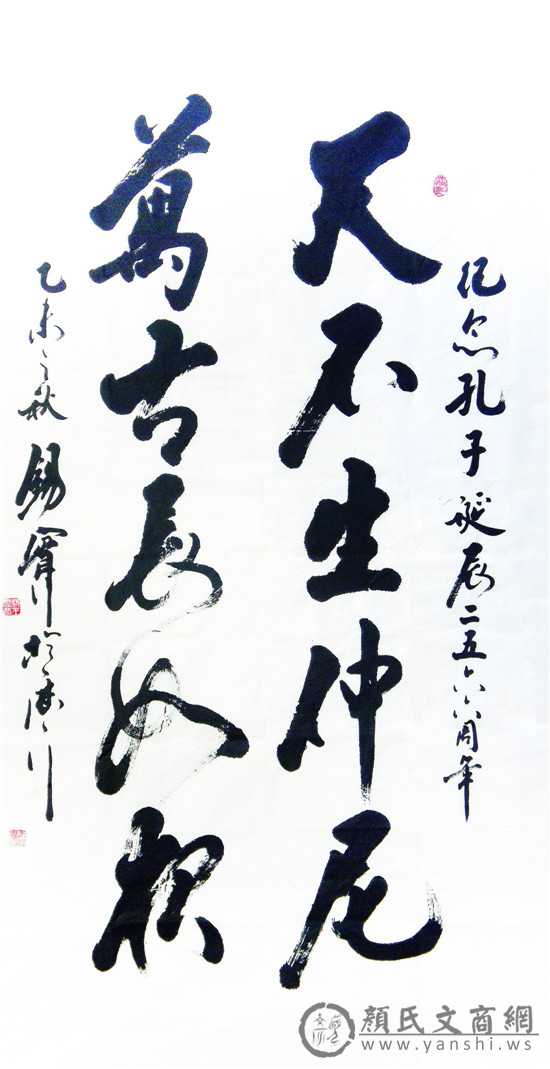 纪念孔子诞辰二五六六周年
天不生仲尼
萬古長如夜
乙未之秋 錫
顏氏文商網
www.yanshi.ws